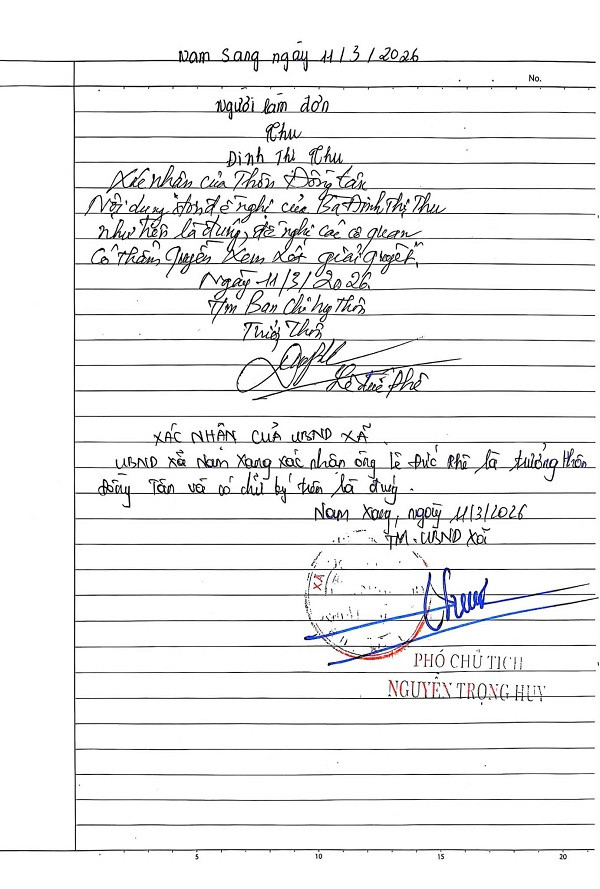 Nam Sang ngày 11/3/2026
No.
Người làm đơn
Thu
Đinh Thị Thu
Xác nhận của Thôn Đồng tân
Nội dung đơn đề nghị của Bà Đinh Thị Thu
như trên là đúng, đề nghị các cơ quan
Có thẩm quyền xem xét giải quyết,
Ngày 11/3/2026
T/m Ban Chỉ huy thôn
Trưởng Thôn
Lê Đức Phê
XÁC NHẬN CỦA UBND XÃ
UBND xã Nam Xang xác nhận ông Lê Đức Phê là trưởng thôn
Đồng Tân và có chữ ký trên là đúng.
Nam Xang, ngày 11/3/2026
TM. UBND Xã
XÃ
PHÓ CHỦ TỊCH
NGUYỄN TRỌNG HUY
5 10 15 20